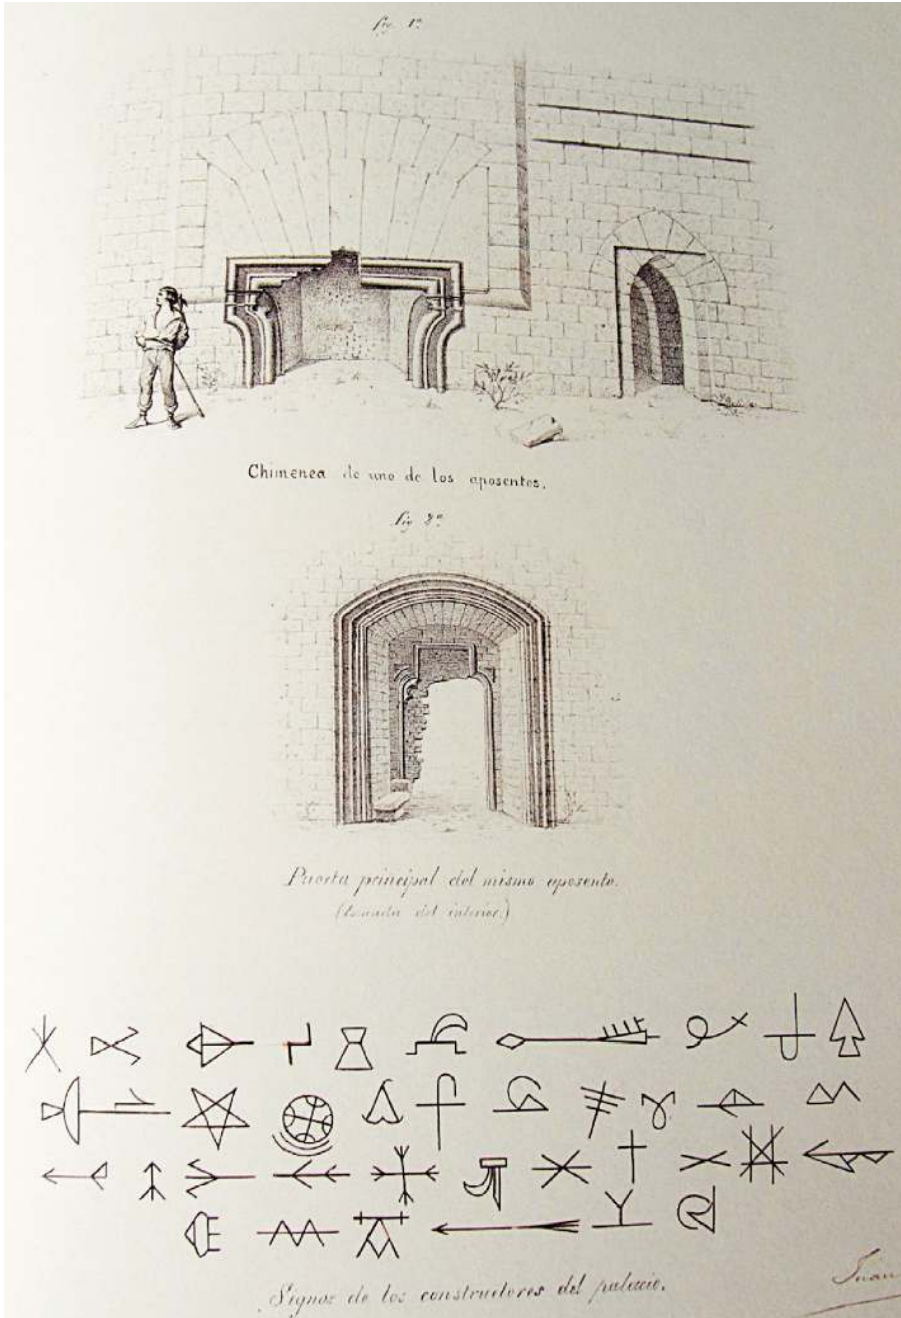 Fig. 1ª
Chimenea de uno de los aposentos.
Fig. 2ª
Puerta principal del mismo aposento.
(Tomada del interior.)
Signos de los constructores del palacio.
Juan